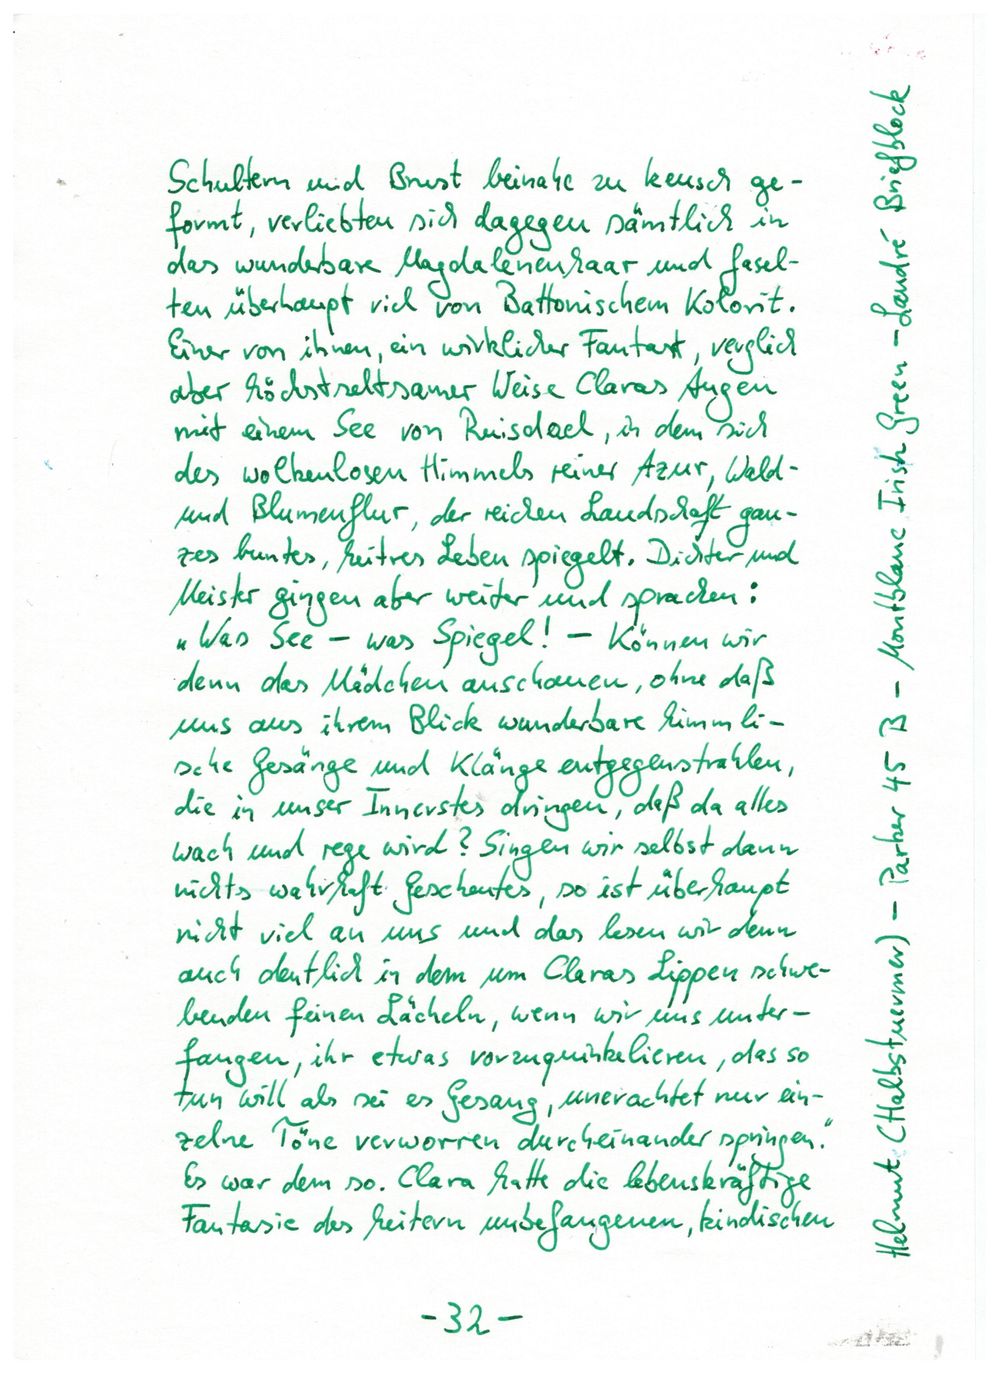 Schultern und Brust beinahe zu keusch ge-
formt, verliebten sich dagegen sämtlich in
das wunderbare Magdalenenhaar und fasel-
ten überhaupt viel von Battonischem Kolorit.
Einer von ihnen, ein wirklicher Fantast, verglich
aber höchstseltsamer Weise Claras Augen
mit einem See von Ruisdael, in dem sich
des wolkenlosen Himmels reiner Azur, Wald-
und Blumenflur, der reichen Landschaft gan-
zes buntes, heitres Leben spiegelt. Dichter und
Meister gingen aber weiter und sprachen:
„Was See – was Spiegel! – Können wir
denn das Mädchen anschauen, ohne daß
uns aus ihrem Blick wunderbare himmli-
sche Gesänge und Klänge entgegenstrahlen,
die in unser Innerstes dringen, daß da alles
wach und rege wird? Singen wir selbst dann
nichts wahrhaft Gescheutes, so ist überhaupt
nicht viel an uns und das lesen wir denn
auch deutlich in dem um Claras Lippen schwe-
benden feinen Lächeln, wenn wir uns unter-
fangen, ihr etwas vorzuquinkelieren, das so
tun will als sei es Gesang, unerachtet nur ein-
zelne Töne verworren durcheinander springen."
Es war dem so. Clara hatte die lebenskräftige
Fantasie des heitern unbefangenen, kindischen
-32-
Helmut (Halbstuermer) – Parker 45 B – Montblanc Irish Green – Landré Briefblock